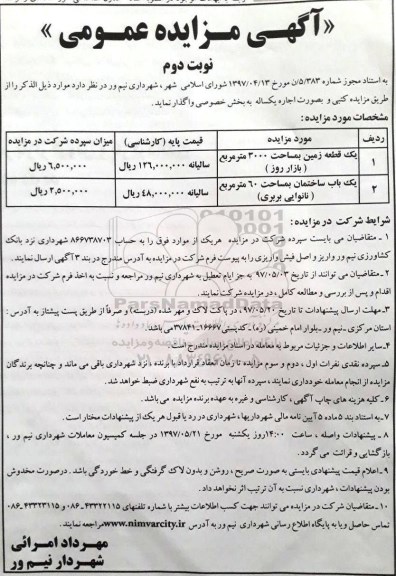 «آگهی مزایده عمومی»
نوبت دوم
به استناد مجوز شماره ۵/۳۸۳/ن مورخ ۱۳۹۷/۰۴/۱۳ شورای اسلامی شهر، شهرداری نیم ور در نظر دارد موارد ذیل الذکر را از
طریق مزایده کتبی و بصورت اجاره یکساله به بخش خصوصی واگذار نماید.
مشخصات مورد مزایده:
ردیف مورد مزایده قیمت پایه (کارشناسی) میزان سپرده شرکت در مزایده
۱ یک قطعه زمین بمساحت ۳۰۰۰ مترمربع (بازار روز) سالیانه ۱۲۶,۰۰۰,۰۰۰ ریال ۶,۵۰۰,۰۰۰ ریال
۲ یک باب ساختمان بمساحت ۶۰ مترمربع (نانوایی بربری) سالیانه ۴۸,۰۰۰,۰۰۰ ریال ۲,۵۰۰,۰۰۰ ریال
شرایط شرکت در مزایده:
۱ـ متقاضیان می بایست سپرده شرکت در مزایده هریک از موارد فوق را به حساب ۸۶۶۷۳۸۷۰۳ شهرداری نزد بانک
کشاورزی نیم ور واریز و اصل فیش واریزی را به پیوست فرم شرکت در مزایده به آدرس مندرج در بند ۳ آگهی ارسال نمایند.
۲ـ متقاضیان می توانند از تاریخ ۹۷/۰۵/۰۳ به جز ایام تعطیل به شهرداری نیم ور مراجعه و نسبت به اخذ فرم شرکت در مزایده
اقدام و پس از بررسی و مطالعه کامل، در مزایده شرکت نمایند.
۳ـ مهلت ارسال پیشنهادات تا تاریخ ۹۷/۰۵/۲۰، در پاکت لاک و مهر شده (دربسته) و صرفاً از طریق پست پیشتاز به آدرس:
استان مرکزی ـ نیم ور ـ بلوار امام خمینی (ره) ـ کدپستی ۱۶۶۶۷ـ۳۷۸۴۱ می باشد.
۴ـ سایر اطلاعات و جزئیات مربوط به معامله در اسناد مزایده مندرج است.
۵ـ سپرده نقدی نفرات اول، دوم و سوم مزایده تا زمان انعقاد قرارداد با برنده، نزد شهرداری باقی می ماند و چنانچه برندگان
مزایده از انجام معامله خودداری نمایند، سپرده آنها به ترتیب به نفع شهرداری ضبط خواهد شد.
۶ـ کلیه هزینه های چاپ آگهی، کارشناسی و غیره به عهده برنده مزایده می باشد.
۷ـ به استناد بند ۵ ماده ۵ آیین نامه مالی شهرداریها، شهرداری در رد یا قبول هر یک از پیشنهادات مختار است.
۸ـ پیشنهادات واصله، ساعت ۱۴:۰۰ روز یکشنبه مورخ ۱۳۹۷/۰۵/۲۱ در جلسه کمیسیون معاملات شهرداری نیم ور،
بازگشایی و قرائت می گردد.
۹ـ اعلام قیمت پیشنهادی بایستی به صورت صریح، روشن و بدون لاک گرفتگی و خط خوردگی باشد. درصورت مخدوش
بودن پیشنهادات، شهرداری نسبت به آن ترتیب اثر نخواهد داد.
۱۰ـ متقاضیان شرکت در مزایده می توانند جهت کسب اطلاعات بیشتر با شماره تلفنهای ۴۳۳۲۲۱۱۵ـ۰۸۶ و ۴۳۳۲۳۱۱۵ـ۰۸۶
تماس حاصل و یا به پایگاه اطلاع رسانی شهرداری نیم ور به آدرس www.nimvarcity.ir مراجعه نمایند.
مهرداد امرائی
شهردار نیم ور